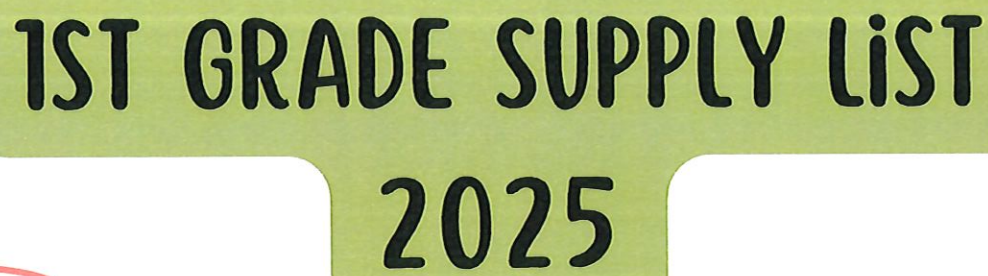 1ST GRADE SUPPLY LiST
2025